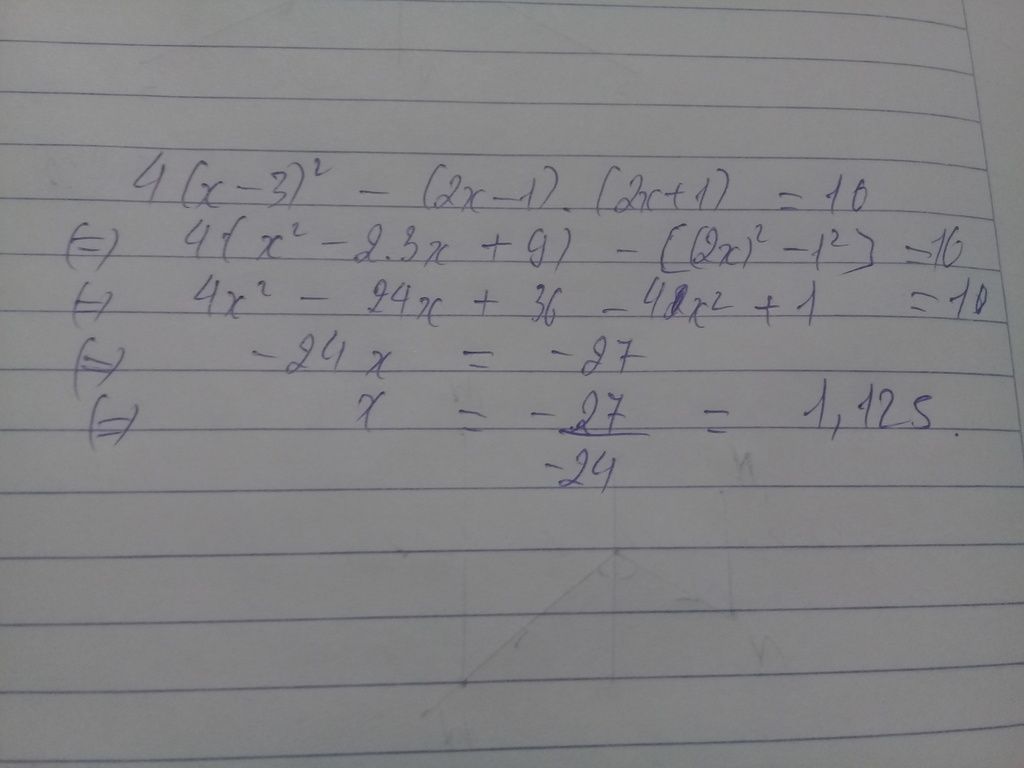 4(x-3)² - (2x-1).(2x+1) = 10
(=) 4(x² - 2.3x + 9) - [(2x)² - 1²] = 10
(=) 4x² - 24x + 36 - 4x² + 1 = 10
(=) -24x = -27
(=) x = -27/-24 = 1,125.